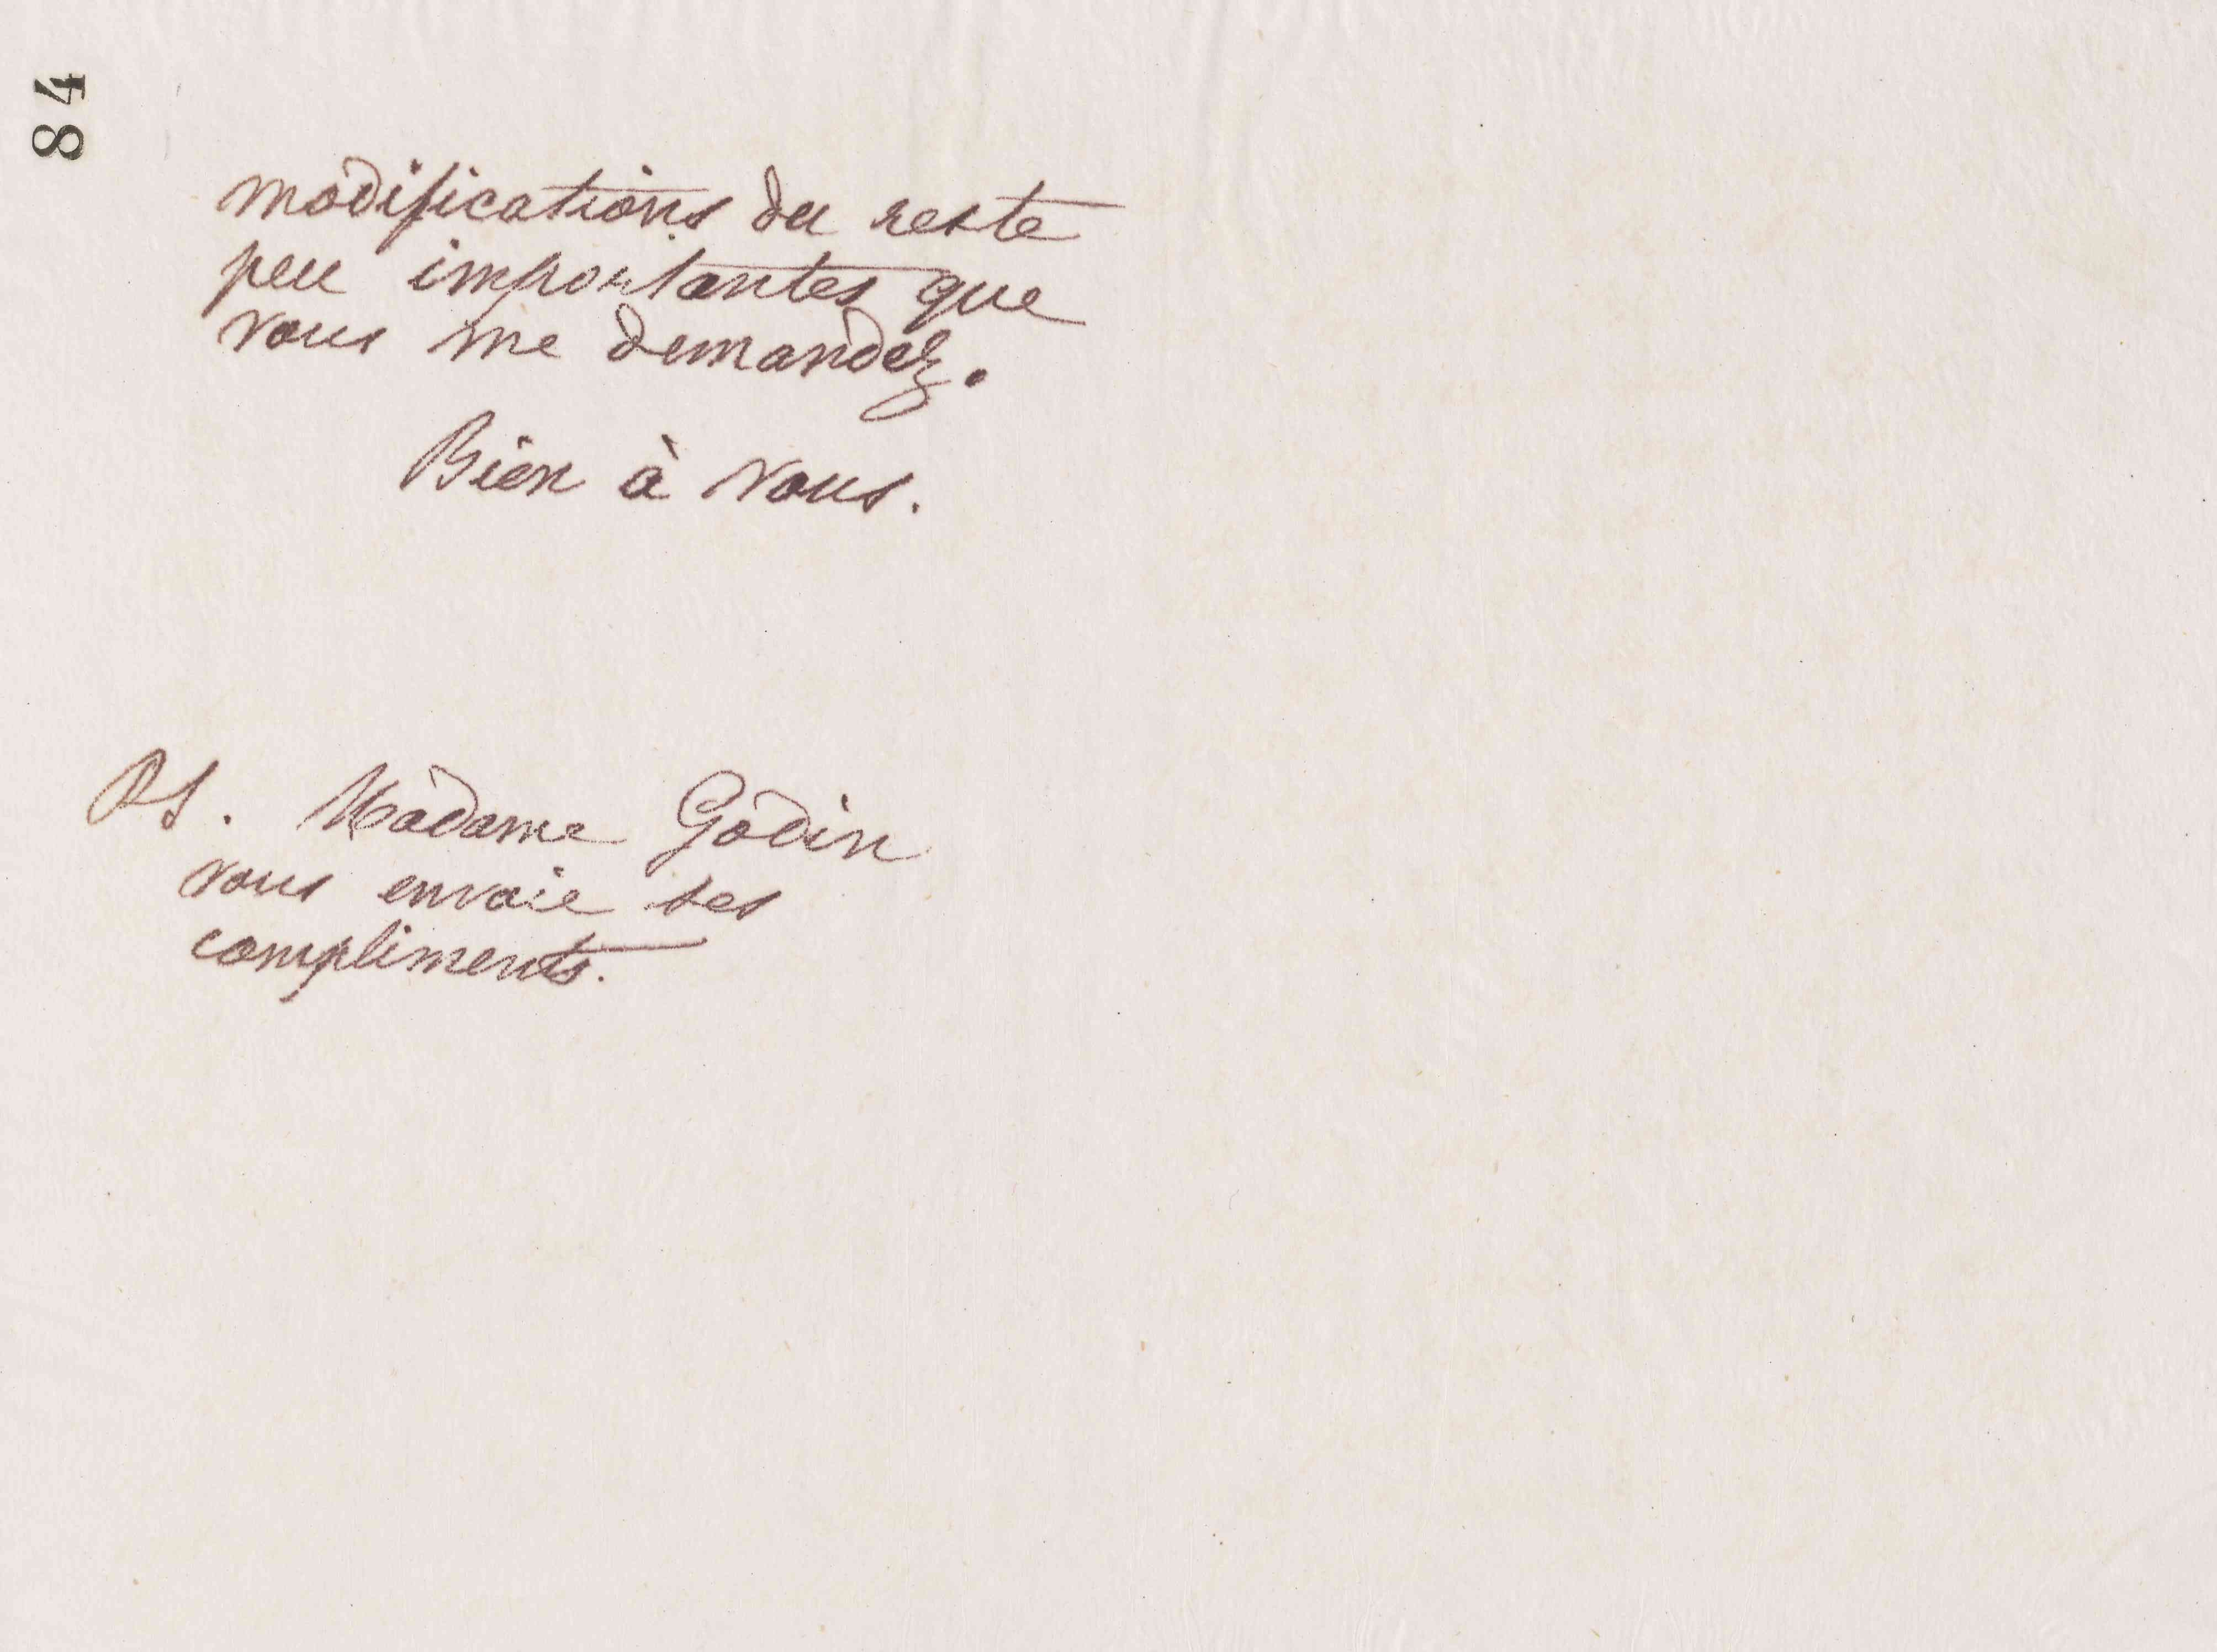 84
modifications du reste
peu importantes que
vous me demandez.
Bien à vous.
PS. Madame Godin
vous envoie ses
compliments.